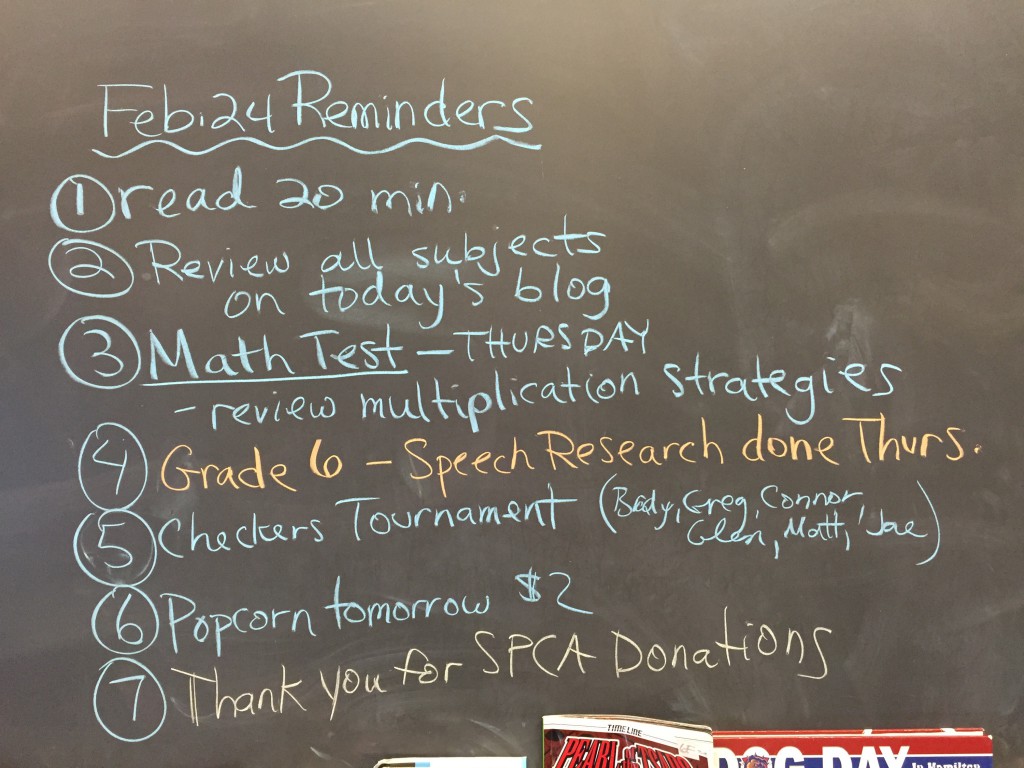 Feb. 24 Reminders
① read 20 min.
② Review all subjects
on today's blog
③ Math Test – THURSDAY
- review multiplication strategies
④ Grade 6 – Speech Research done Thurs.
⑤ Checkers Tournament (Brody, Greg, Connor,
Glen, Matt, Jae)
⑥ Popcorn tomorrow $2
⑦ Thank you for SPCA Donations
TIMELINE
PEARL
DOG DAY In Hamilton